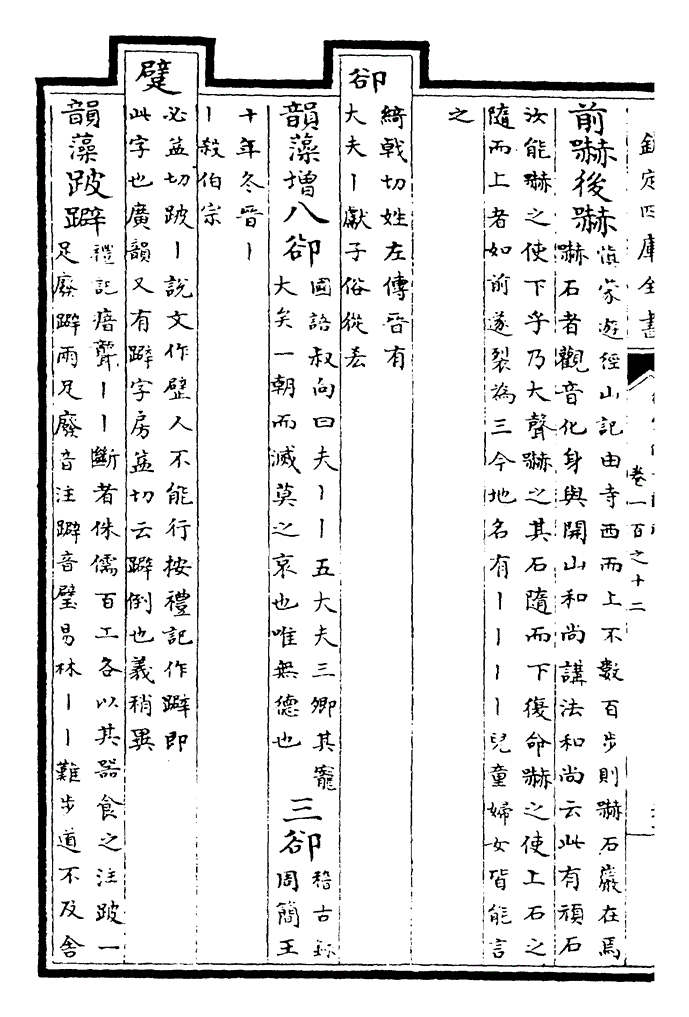 欽定四庫全書
卷一百之十二
前嚇後嚇
滇蒙遊經山記由寺西而上不數百步則嚇石巖在焉
嚇石者觀音化身與開山和尚講法和尚云此有頑石
汝能嚇之使下乎乃大聲嚇之其石隨而下復命嚇之使上石之
隨而上者如前遂裂為三今地名有丨丨丨丨兒童婦女皆能言
之
郤
綺戟切姓左傳晉有
大夫丨獻子俗從㕁
韻藻增八郤
國語叔向曰夫丨丨五大夫三卿其寵
大矣一朝而滅莫之哀也唯無德也
三郤
稽古錄
周簡王
十年冬晉丨
丨殺伯宗
躄
必益切跛丨說文作壁人不能行按禮記作躃即
此字也廣韻又有躃字房益切云躃倒也義稍異
韻藻跛躃
禮記瘖聾丨丨斷者侏儒百工各以其器食之注跛一
足廢躃兩足廢音注躃音璧易林丨丨難步道不及舍